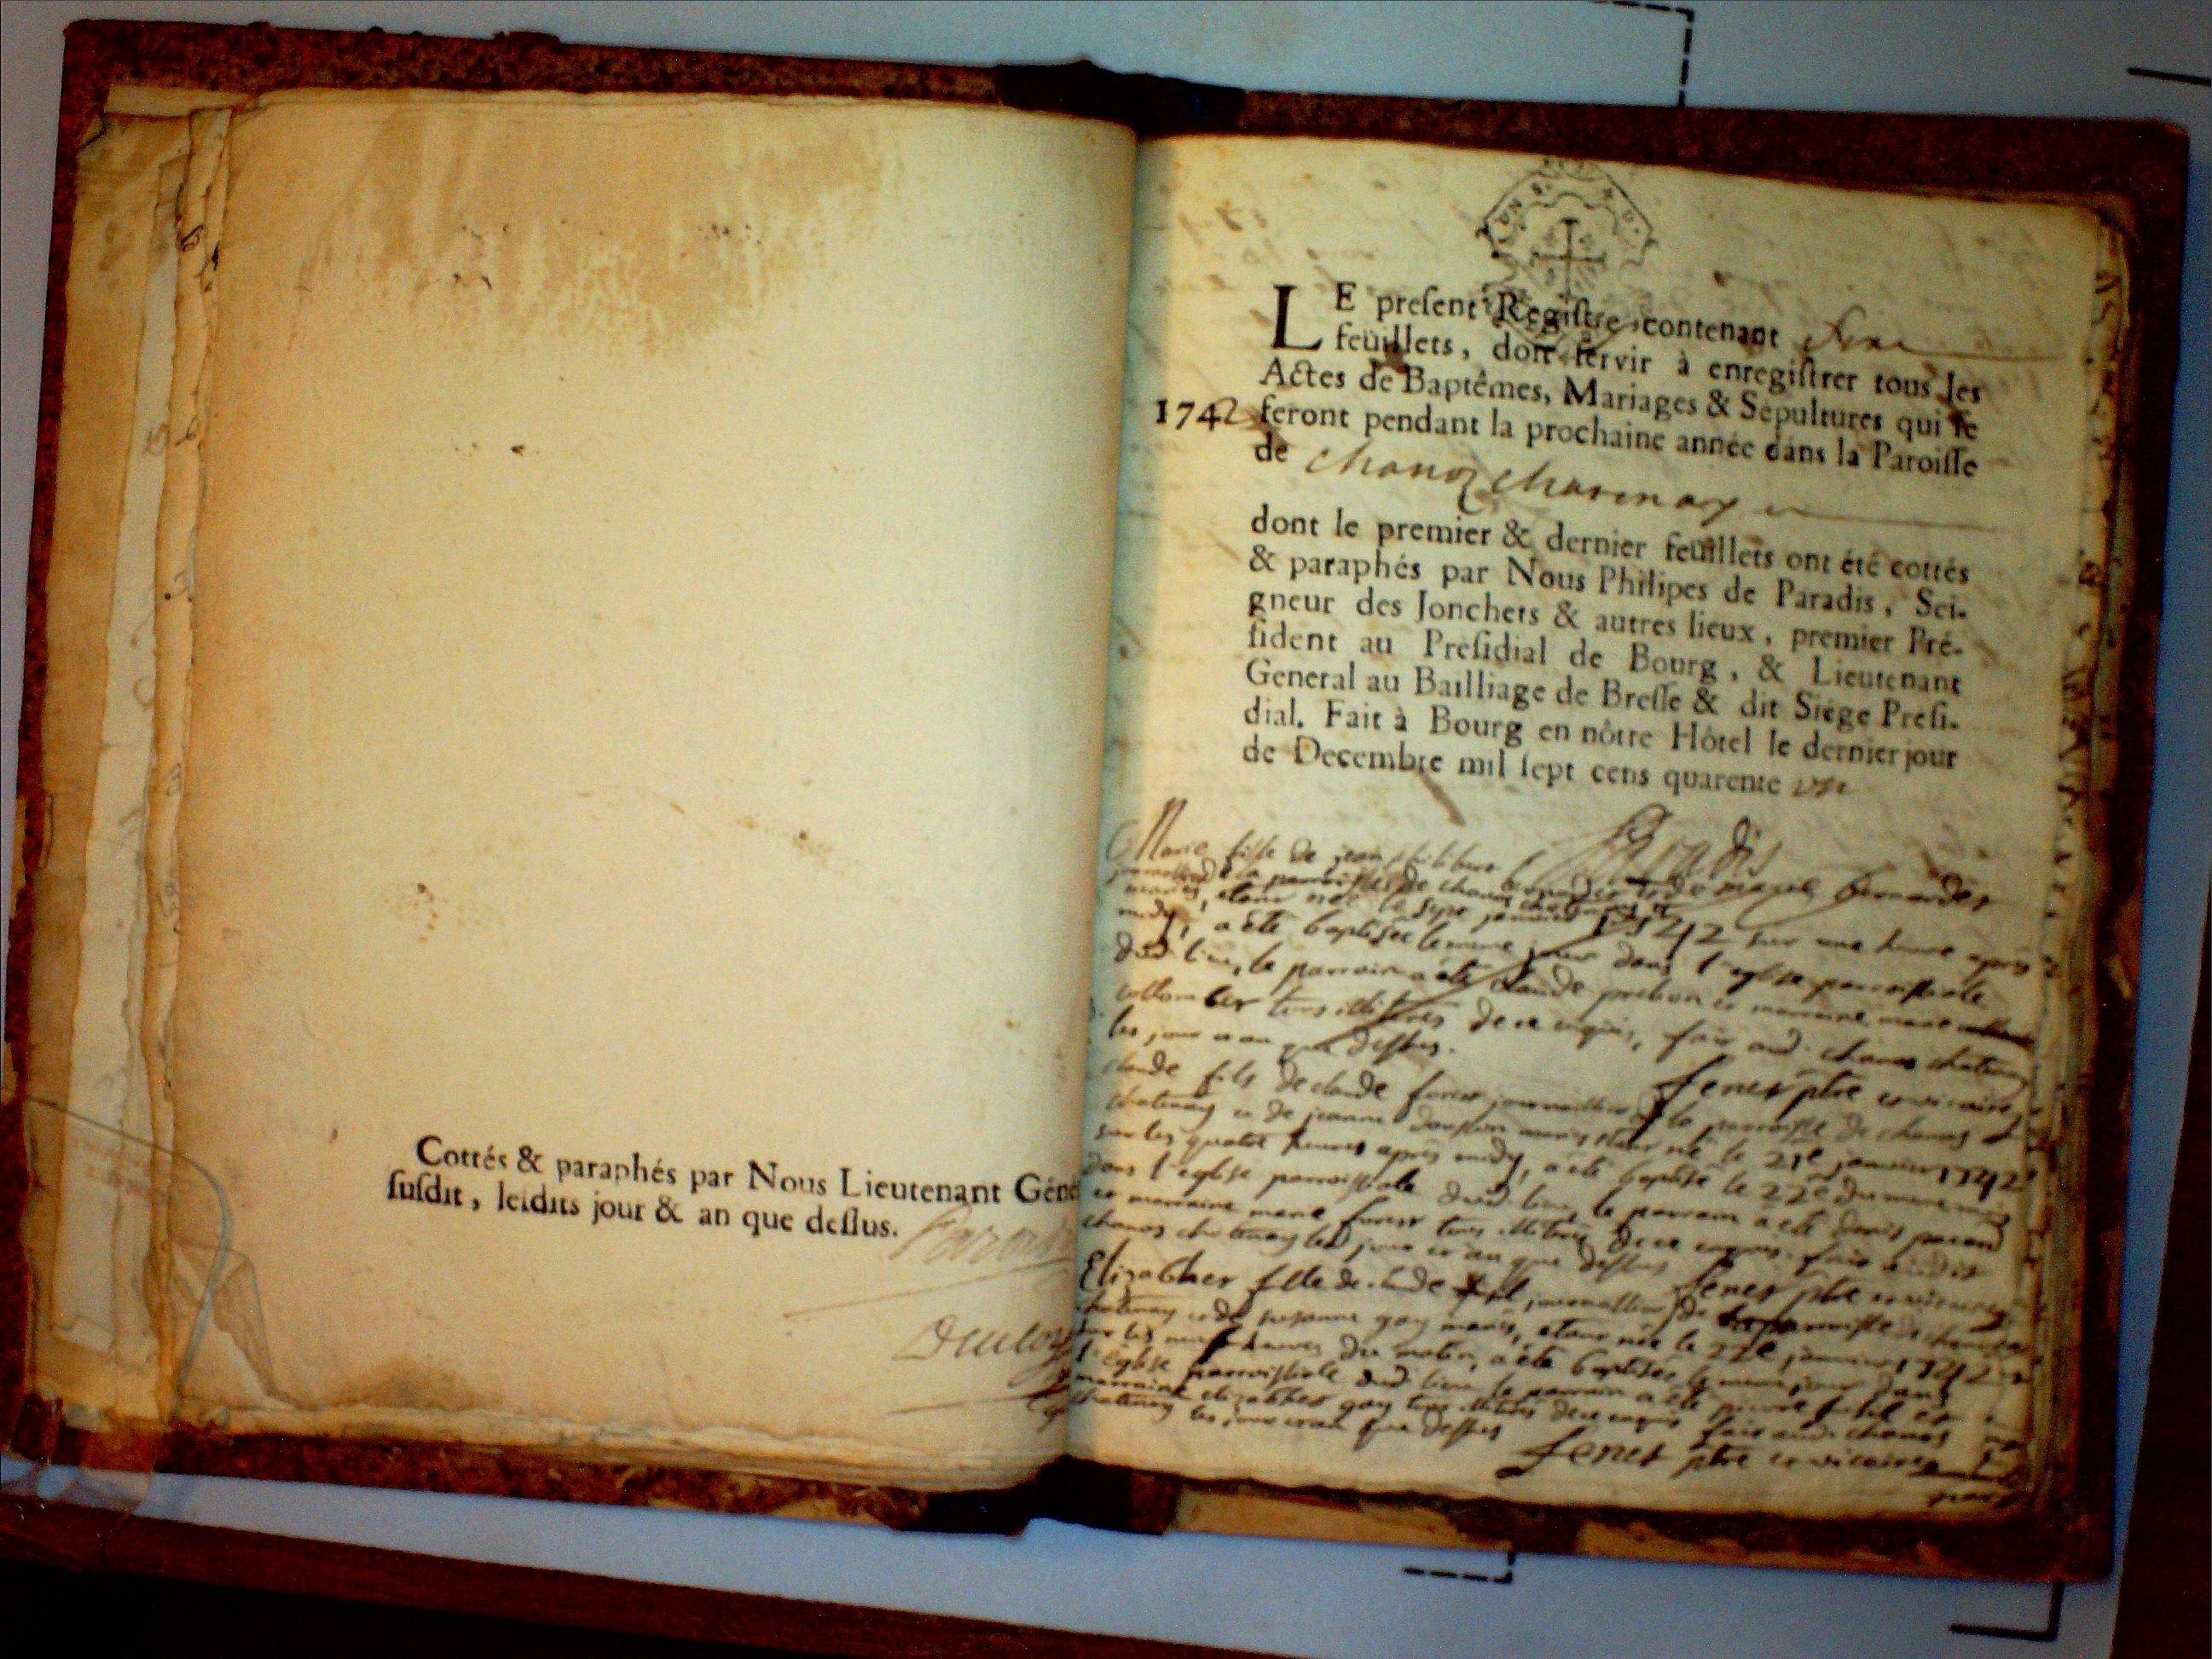 Cottés & paraphés par Nous Lieutenant Géné
ſuſdit, leſdits jour & an que deſſus.
LE preſent Regiſtre contenant
feüillets, doit ſervir à enregiſtrer tous les
Actes de Baptêmes, Mariages & Sépultures qui ſe
1742 feront pendant la prochaine année dans la Paroiſſe
de Chanoz Chatenay
dont le premier & dernier feüillets ont été cottés
& paraphés par Nous Philipes de Paradis, Sei-
gneur des Jonchets & autres lieux, premier Pré-
ſident au Preſidial de Bourg, & Lieutenant
General au Bailliage de Breſſe & dit Siége Preſi-
dial. Fait à Bourg en nôtre Hôtel le dernier jour
de Decembre mil ſept cens quarente une
Paradis
Marie fille de jean philibert
mariés, étant née le janvier 1742 sur une heure après
midy, a été baptisée le même jour dans l'eglise parroissiale
dud. lieu, le parrain a été Claude et marraine marie
tous illiterés de ce enquis, fait aud. chanos chatenay
les jour et an que dessus.
fenet ptre et vicaire
claude fils de claude foret journallier de la parroisse de chanos
chatenay et de jeanne mariés étant né le 21e janvier 1742
sur les quatre heures après midy, a été baptisé le 22e du même mois
dans l'eglise parroissiale dud. lieu, le parrain a été denis
et marraine marie foret tous illiterés de ce enquis. fait aud.
chanos chatenay les jour et an que dessus
fenet ptre et vicaire
Elizabeth fille de claude journallier de parroisse de chanos
chatenay et de suzanne gay mariés, étant née le janvier 1742
sur les neuf heures du matin, a été baptisée le même jour dans
l'eglise parroissiale dud. lieu le parrain a été pierre et
marraine elizabeth gay tous illiterés de ce enquis fait aud. chanos
chatenay les jour et an que dessus
fenet ptre et vicaire